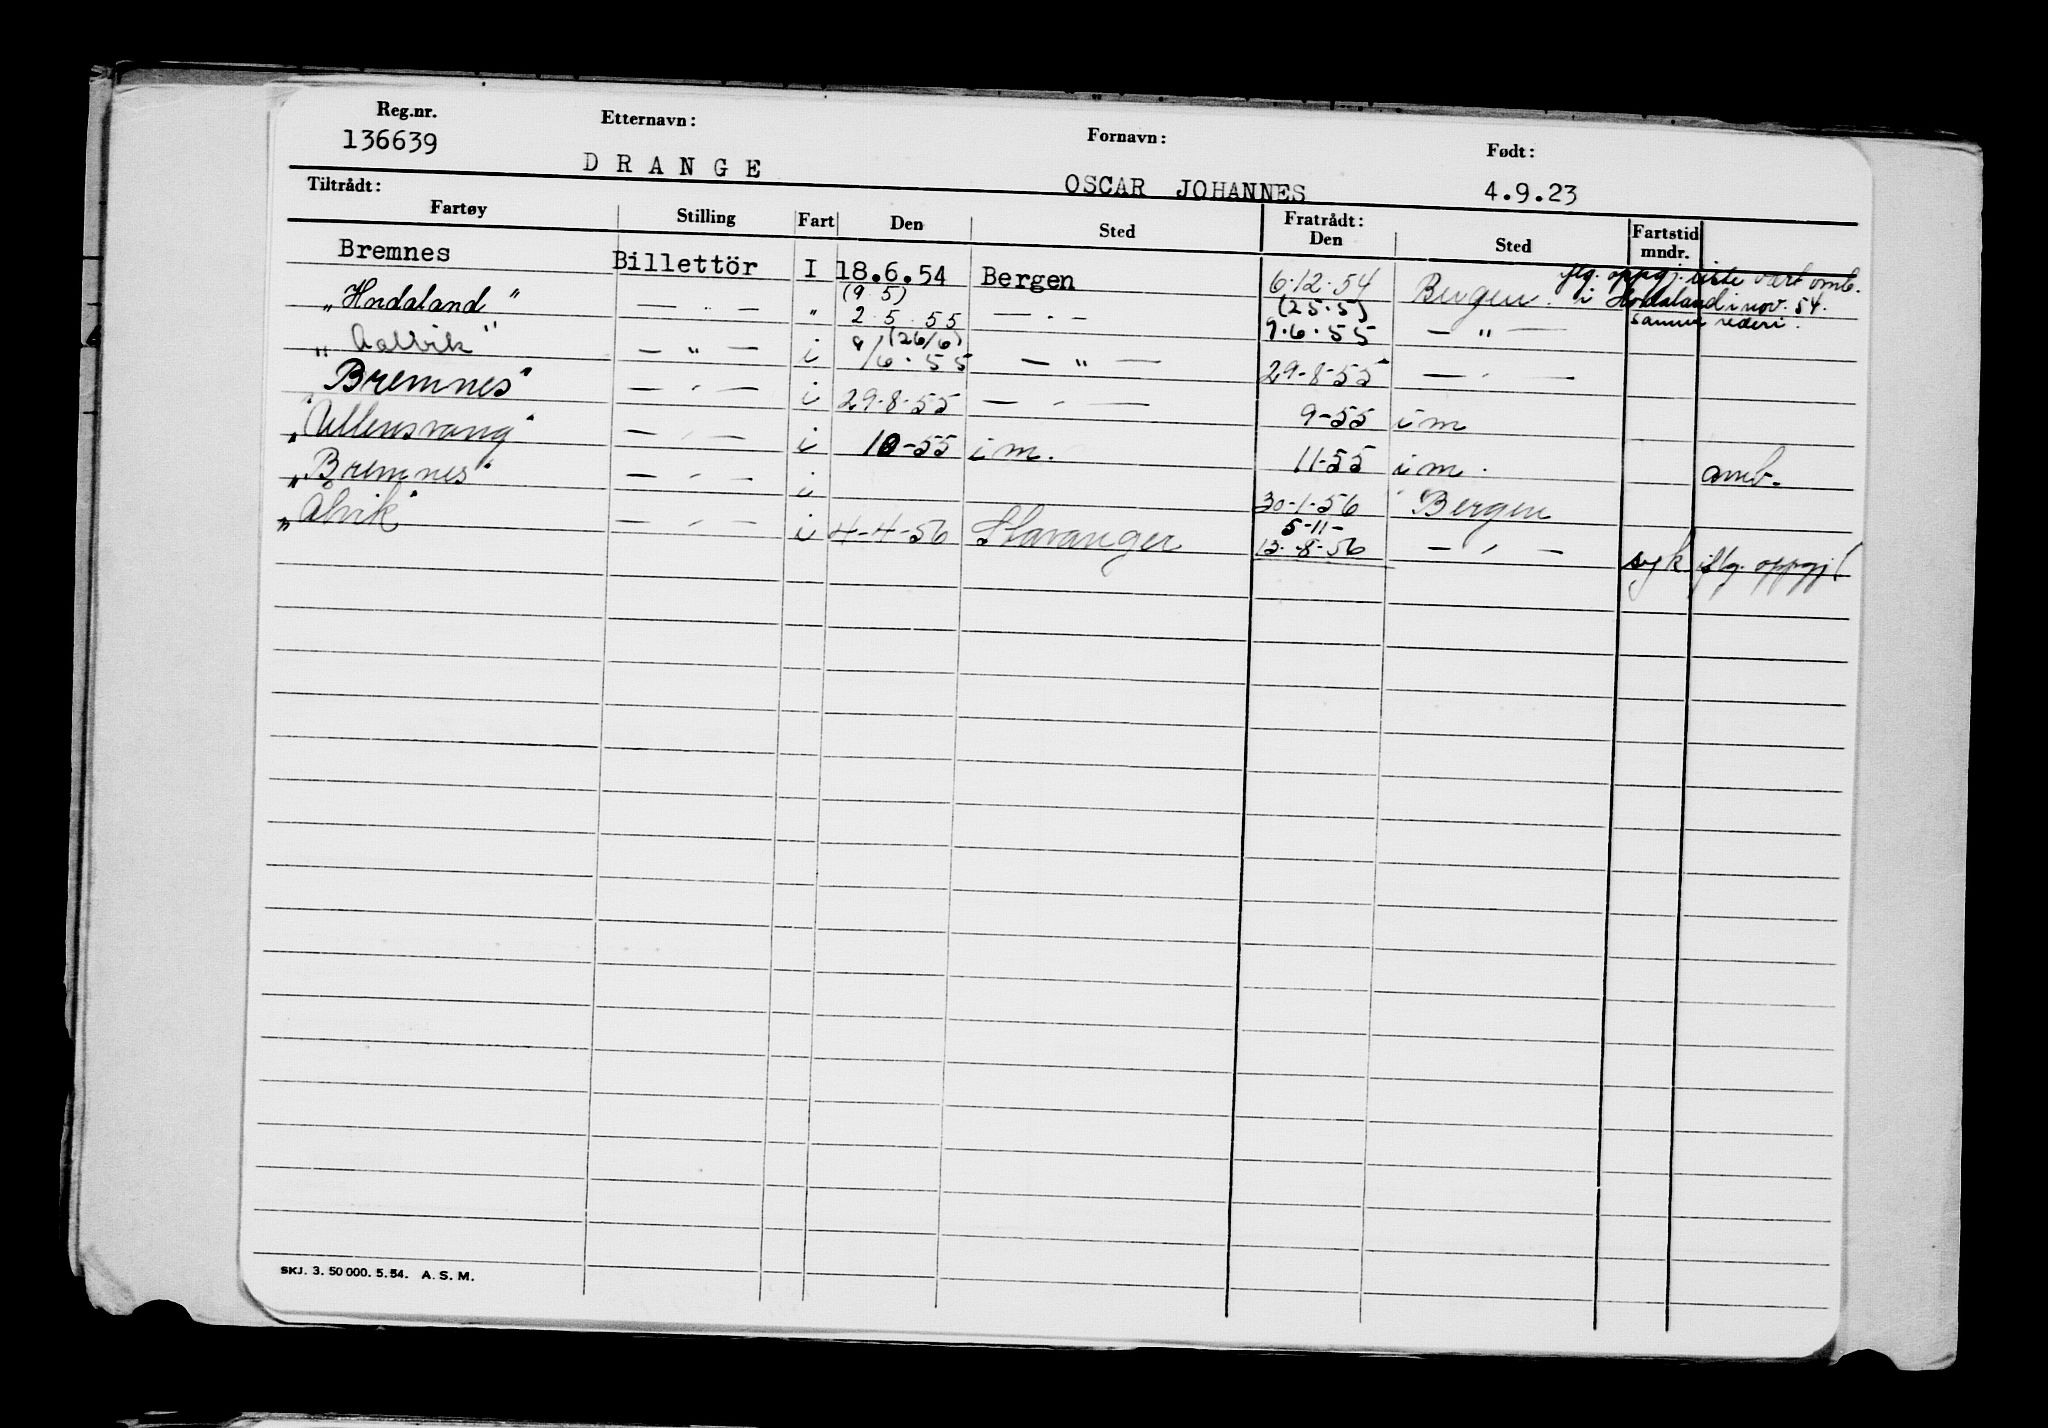 Reg.nr. Etternavn: Fornavn: Født:
136639 DRANGE OSCAR JOHANNES 4.9.23
Tiltrådt: Fratrådt:
Fartøy Stilling Fart Den Sted Den Sted Fartstid mndr.
Bremnes Billettör I 18.6.54 Bergen 6.12.54 Bergen. iflg. oppgj. liste vært omb.
i Hordaland i nov. 54.
samme rederi.
(9.5) (25.5)
„Hordaland" — . — " 2.5.55 — . — 9.6.55 — " —
(26/6)
„Aalvik" — " — i 9/6.55 — " — 29-8-55 — " —
"Bremnes" — " — i 29-8-55 — " — 9-55 i m
„Ullensvang" — " — i 10-55 i m. 11-55 i m. omb.
„Bremnes" — " — i 30-1-56 Bergen
5-11-
„Ålvik" — " — i 4-4-56 Stavanger 13.-8-56 — " — syk iflg. oppgj.
SKJ. 3. 50 000. 5. 54. A. S. M.